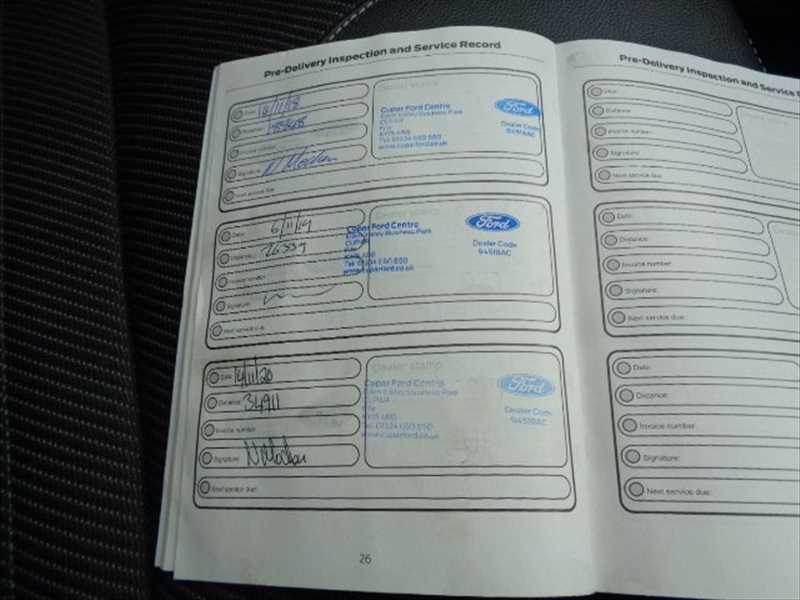 Pre-Delivery Inspection and Service Record
Date:
Distance:
Invoice number:
Signature:
Next service due:
Dealer stamp
Cupar Ford Centre
CUPAR
Fife
www.cuparford.co.uk
Ford
Dealer Code
94518AC
Date: 6/11/19
Distance: 26339
Invoice number:
Signature:
Next service due:
Dealer stamp
Cupar Ford Centre
Business Park
CUPAR
Fife
www.cuparford.co.uk
Ford
Dealer Code
94518AC
Date: /11/20
Distance: 34911
Invoice number:
Signature:
Next service due:
Dealer stamp
Cupar Ford Centre
Business Park
CUPAR
Fife
www.cuparford.co.uk
Ford
Dealer Code
94518AC
26
Pre-Delivery Inspection and Service
Date:
Distance:
Invoice number:
Signature:
Next service due:
Date:
Distance:
Invoice number:
Signature:
Next service due:
Date:
Distance:
Invoice number:
Signature:
Next service due: